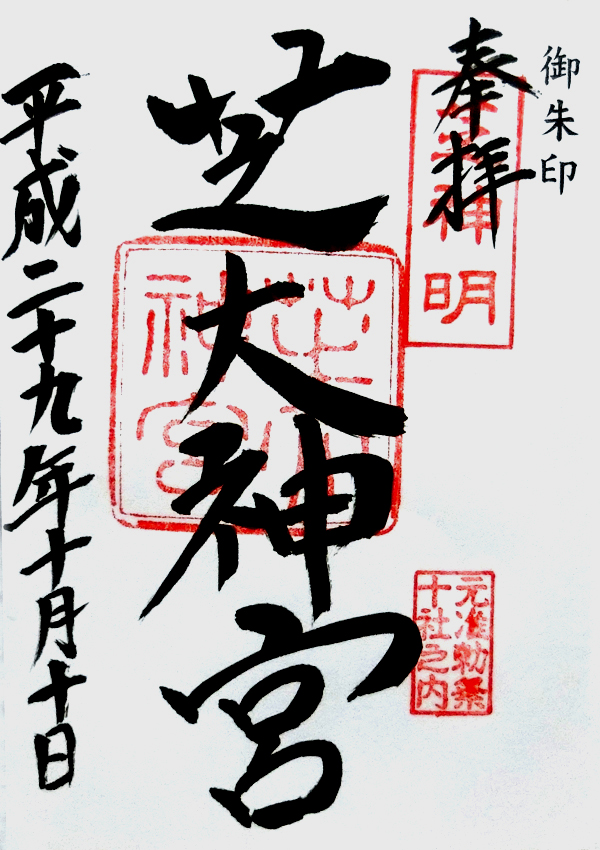 御朱印
奉拝
神明
芝大神宮
芝大神宮
元准勅祭
十社之内
平成二十九年十月十日